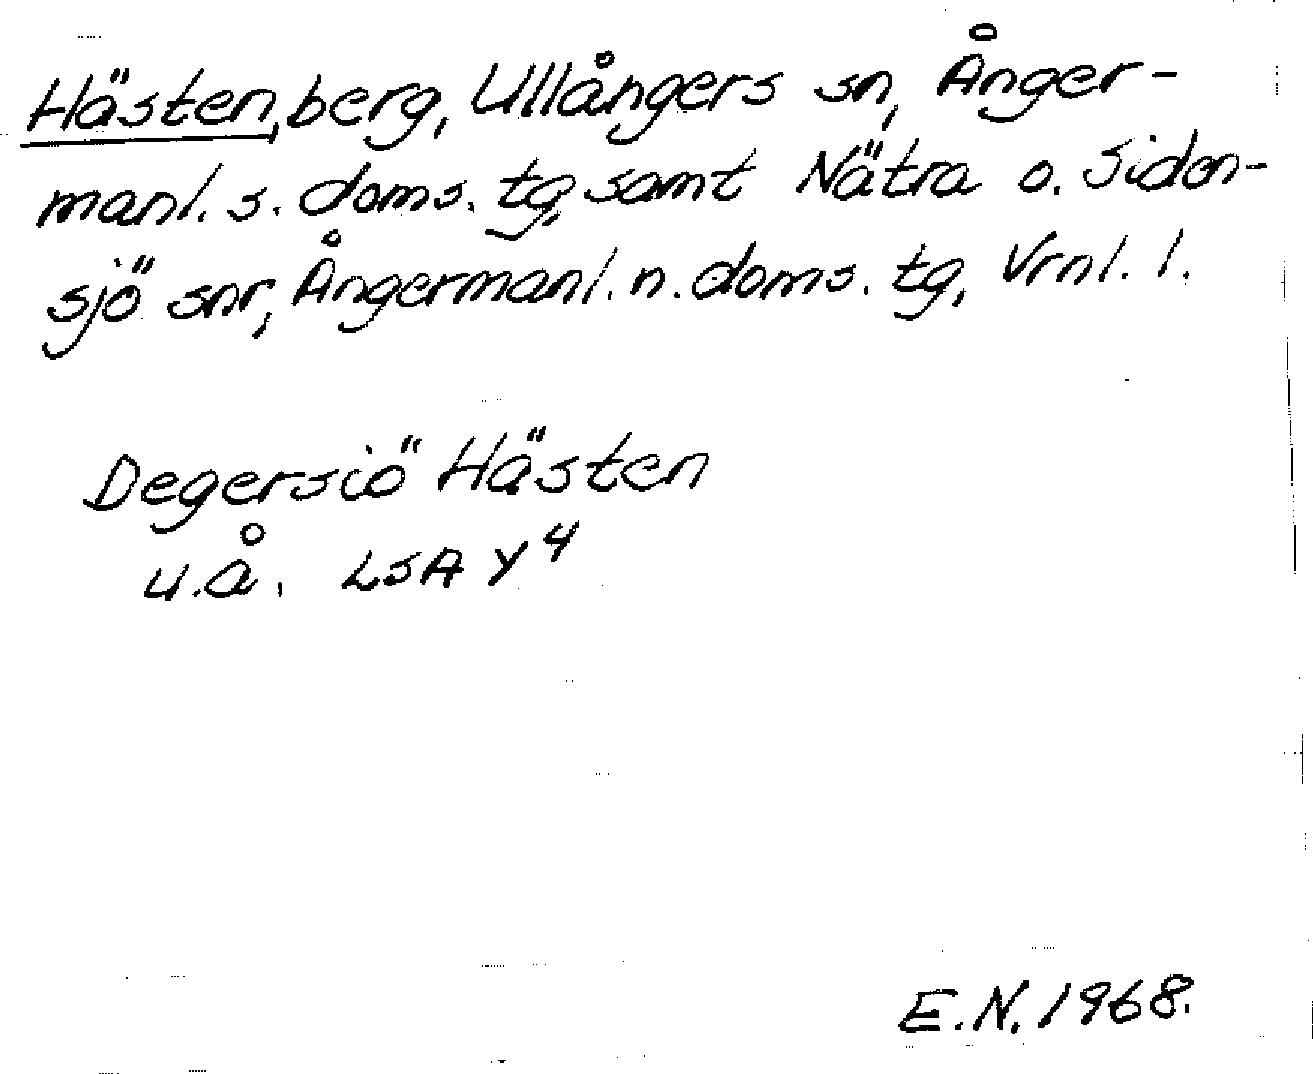 Hästen, berg, Ullångers sn, Ånger-
manl. s. doms. tg, samt Nätra o. Siden-
sjö snr, Ångermanl. n. doms. tg, Vrnl. l.
Degersiö Hästen
u.å. LSA Y4
E.N. 1968.